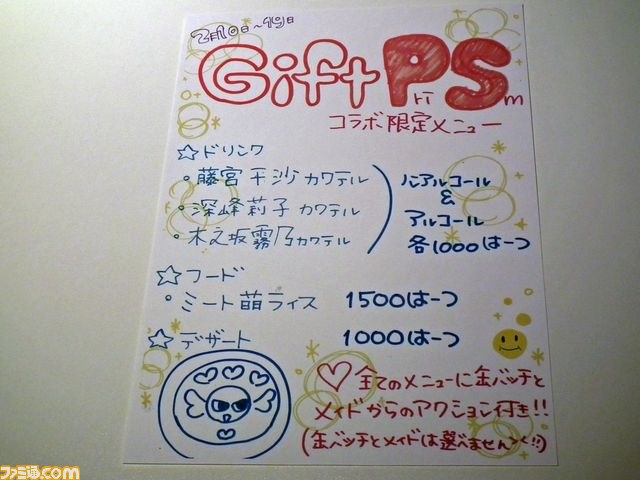 2月10日～19日
Gift PriSm
コラボ限定メニュー
☆ドリンク
・藤宮千沙カクテル
・深峰莉子カクテル
・木之坂霧乃カクテル
ノンアルコール
&
アルコール
各1000はーつ
☆フード
・ミート萌ライス 1500はーつ
☆デザート 1000はーつ
♡全てのメニューに缶バッチと
メイドからのアクション付き!!
(缶バッチとメイドは選べません><!!)
ファミ通.com